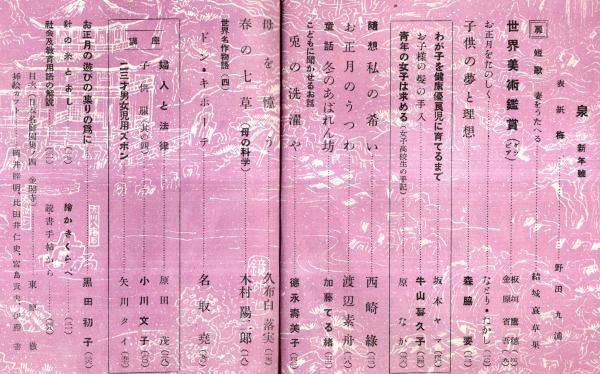 泉 新年號
表紙 梅 野田九浦
扉 短歌 妻をうたへる 結城哀草果
世界美術鑑賞 (グラビア) 板垣鷹穂 金原省吾
お正月をたのしく なとり・たかし
子供の夢と理想 森脇要
わが子を健康優良児に育てるまで 坂本ヤマ
お子様の髪の手入 牛山喜久子
青年の女子は求める (女子高校生の手記) 原なが
随想 私の希い 西崎緑
お正月のうつわ 渡辺素舟
童話 冬のあばれん坊 加藤てる緒
こどもに聞かせるお話
兎の洗濯や 徳永壽美子
母を憶う 久布白落実
春の七草 (母の科学) 木村陽二郎
世界名作物語 (四)
ドン・キホーテ 名取堯
講座
婦人と法律 原田茂
子供服 (其の四) 小川文子
二三才男女児用ズボン 矢川タイ
お正月の遊びの集りの爲に 黒田初子
針の糸とおし 繪かきくらべ
社会及教育用語の解説 読書手帖から
目次 (日本名勝図集ノ四 金閣寺) 東原徹
挿絵カット 岡井睦明、比田井仁史、宮島貴夫、伊藤